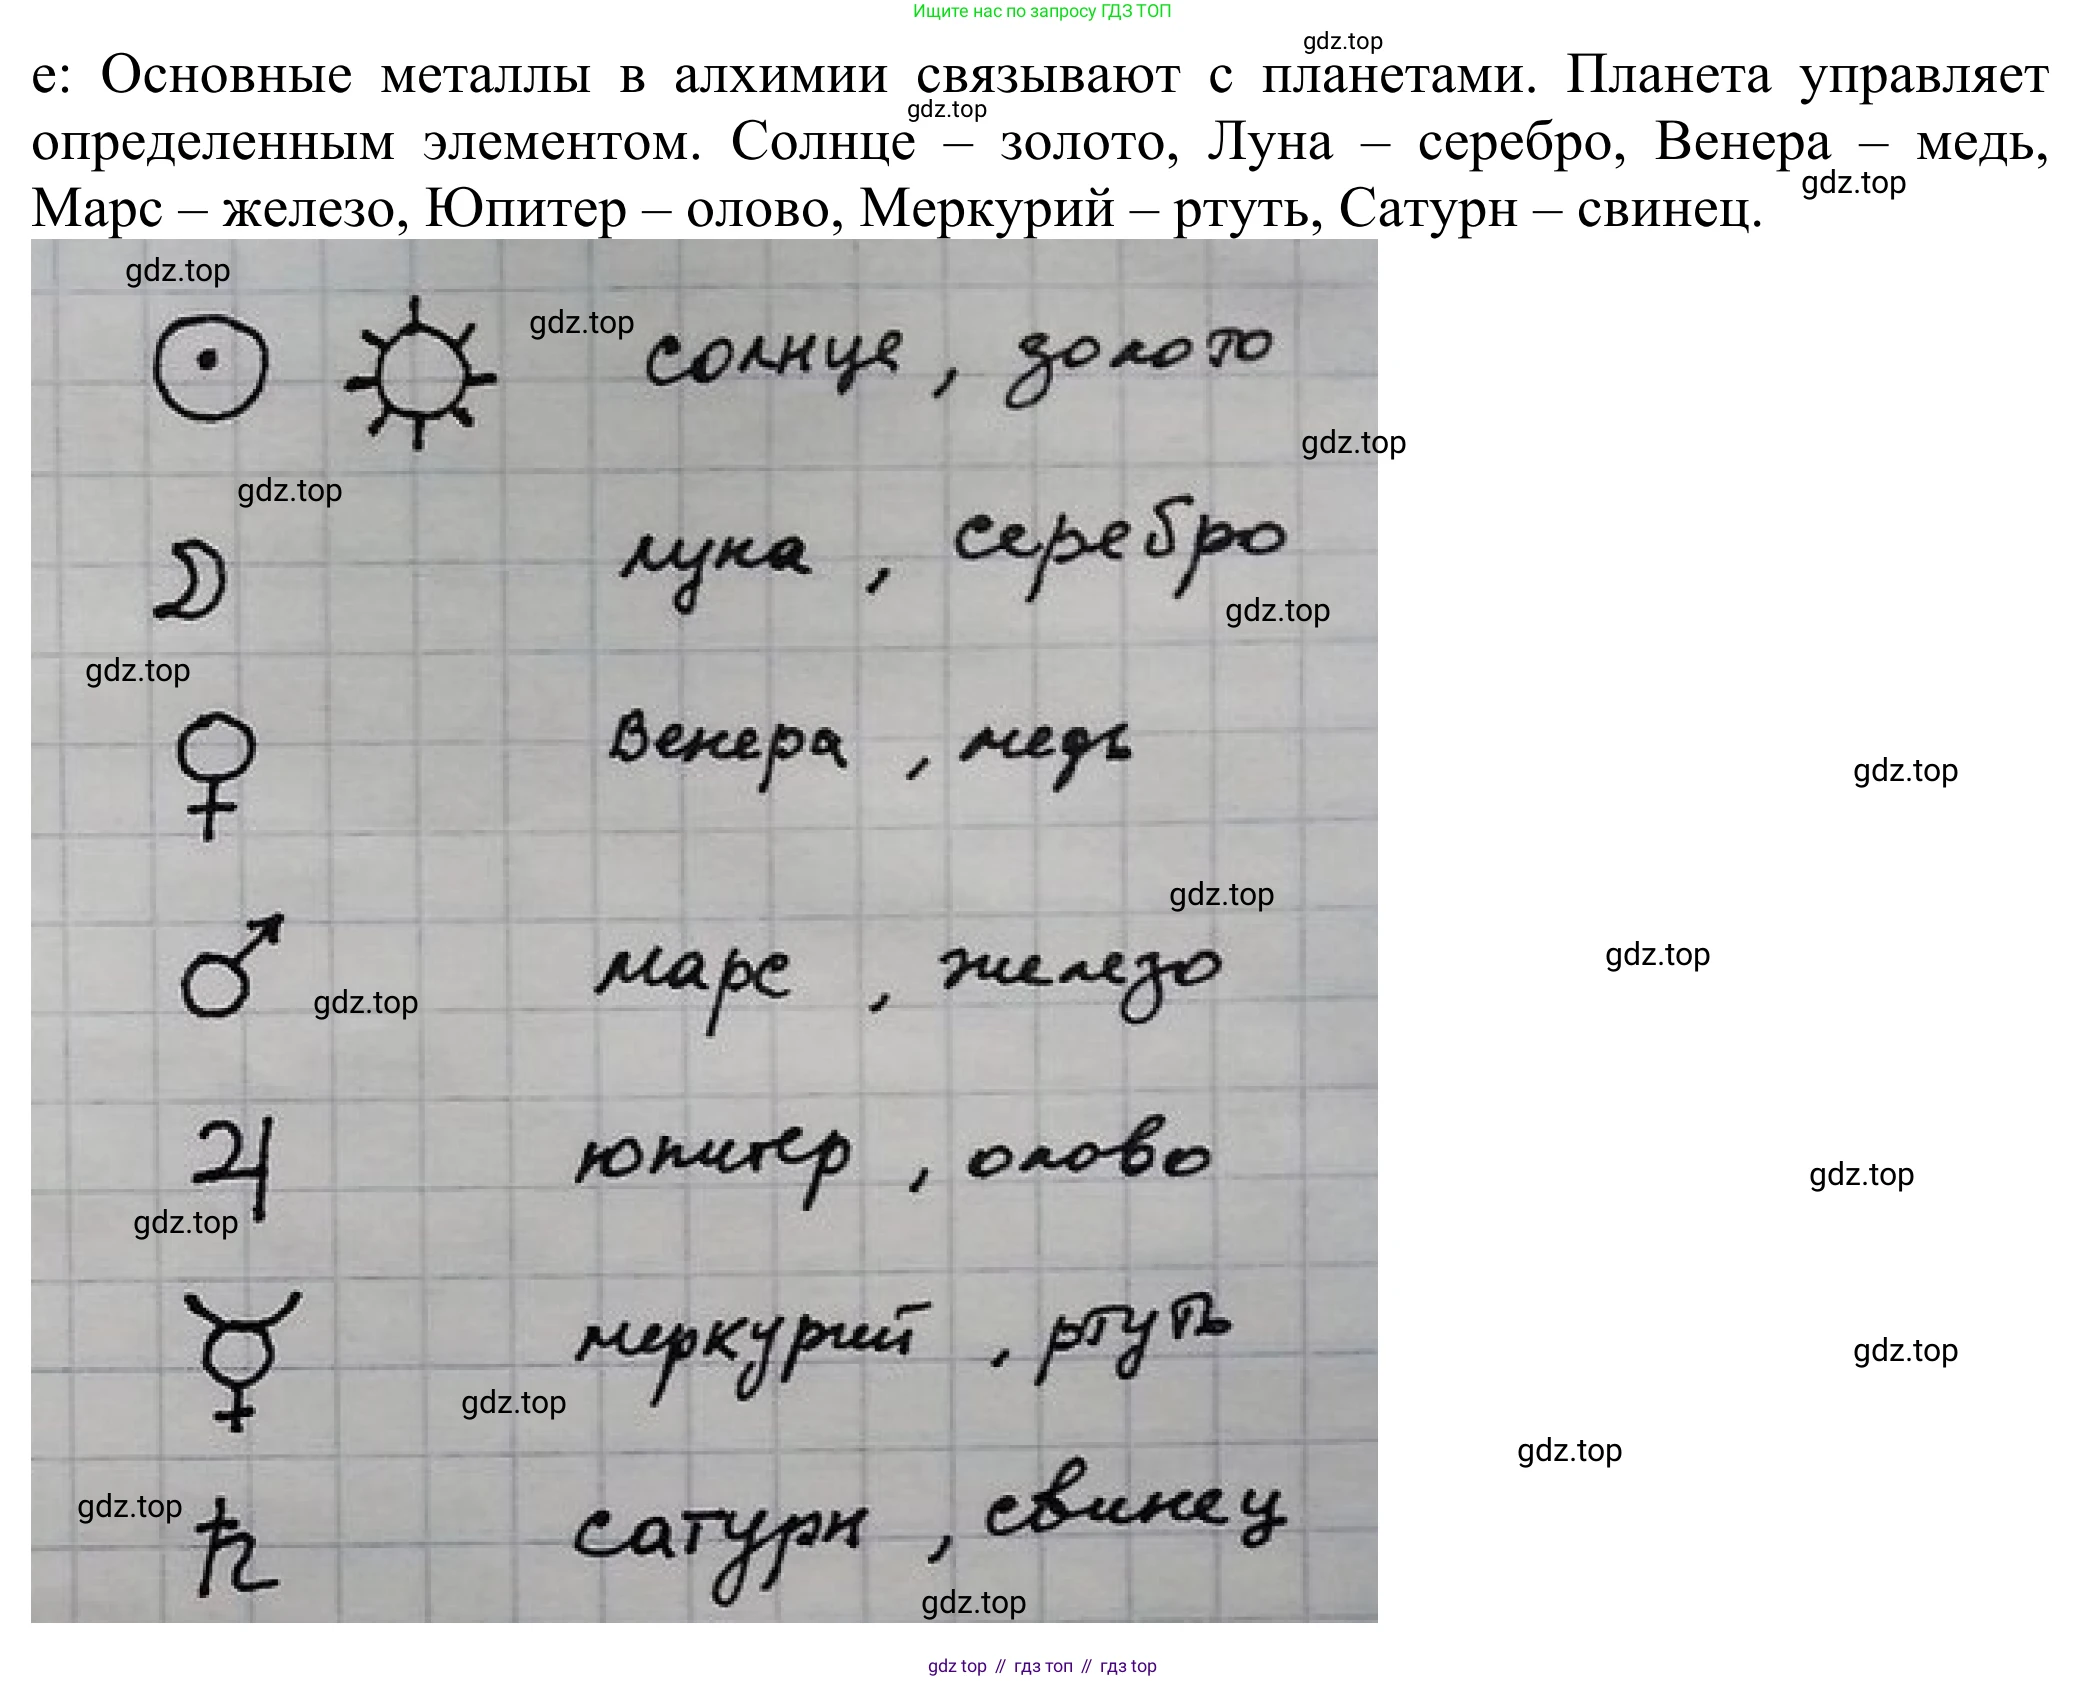 Ищите нас по запросу ГДЗ ТОП
gdz.top
е: Основные металлы в алхимии связывают с планетами. Планета управляет
gdz.top
определенным элементом. Солнце – золото, Луна – серебро, Венера – медь,
gdz.top
Марс – железо, Юпитер – олово, Меркурий – ртуть, Сатурн – свинец.
gdz.top
gdz.top
солнце, золото
gdz.top
gdz.top
луна, серебро
gdz.top
gdz.top
Венера, медь
gdz.top
gdz.top
марс, железо
gdz.top
gdz.top
юпитер, олово
gdz.top
gdz.top
меркурий, ртуть
gdz.top
gdz.top
gdz.top
gdz.top
сатурн, свинец
gdz.top
gdz top // гдз топ // гдз top